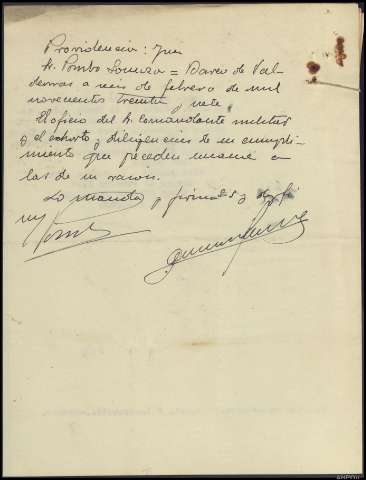 Providencia: Juez
Sr. Pombo Somoza = Barco de Val-
deorras a seis de febrero de mil
novecientos treinta y siete.
El oficio del Sr. Comandante militar
y el exhorto y diligencias de su cumpli-
miento que preceden unanse a
los de su razon.
Lo manda y firma S Sª doy fé
Pombo